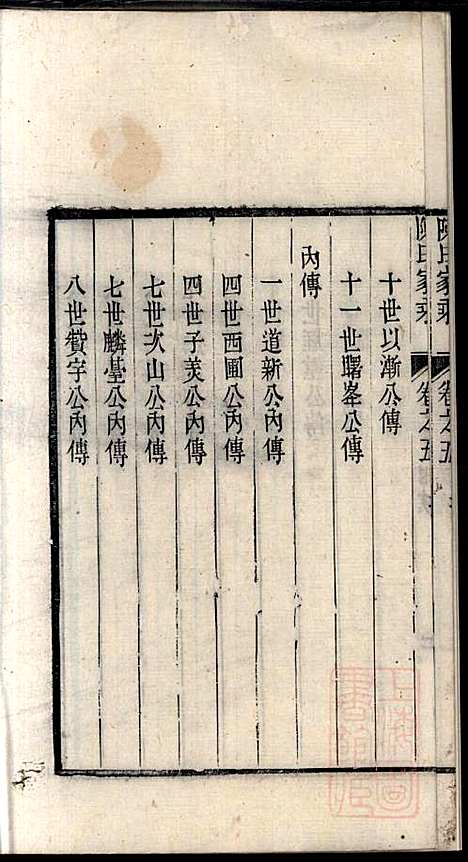 陳氏家乘
卷之五
十世以漸公傳
十一世曙峯公傳
內傳
一世道新公內傳
四世西圃公內傳
四世子羙公內傳
七世次山公內傳
七世麟臺公內傳
八世贊宇公內傳